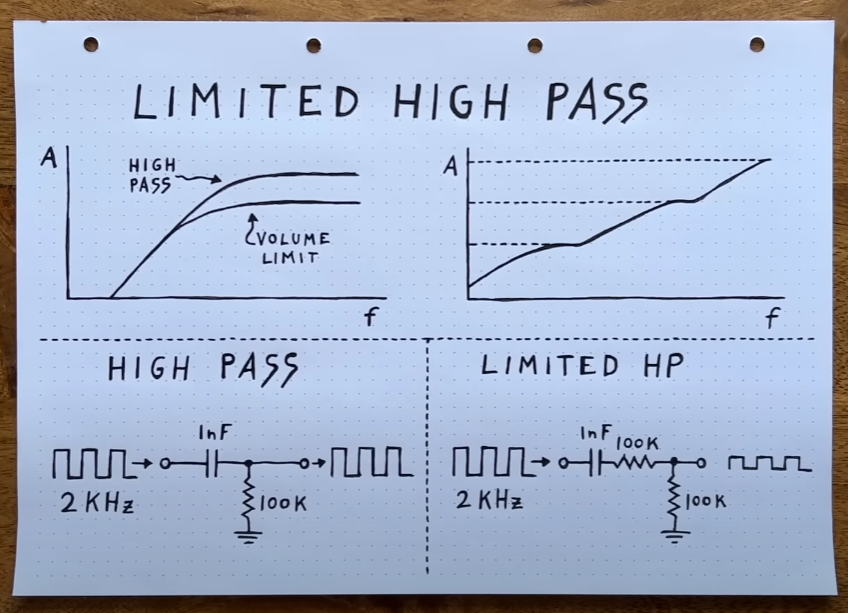 LIMITED HIGH PASS
A
HIGH
PASS
VOLUME
LIMIT
f
A
f
HIGH PASS
1nF
2 KHz
100K
LIMITED HP
1nF
100K
2 KHz
100K